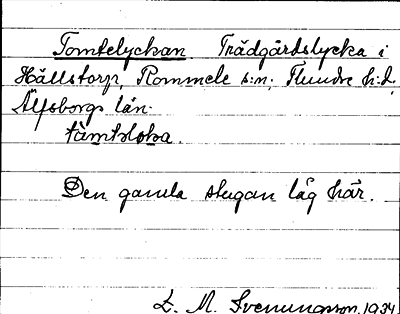 Tomtelyckan Trädgårdslycka i
Hällstorp, Rommele s:n; Flundre h:d,
Älfsborgs län.
tàmtloka.
Den gamla stugan låg här.
L. M. Svenungsson, 1934